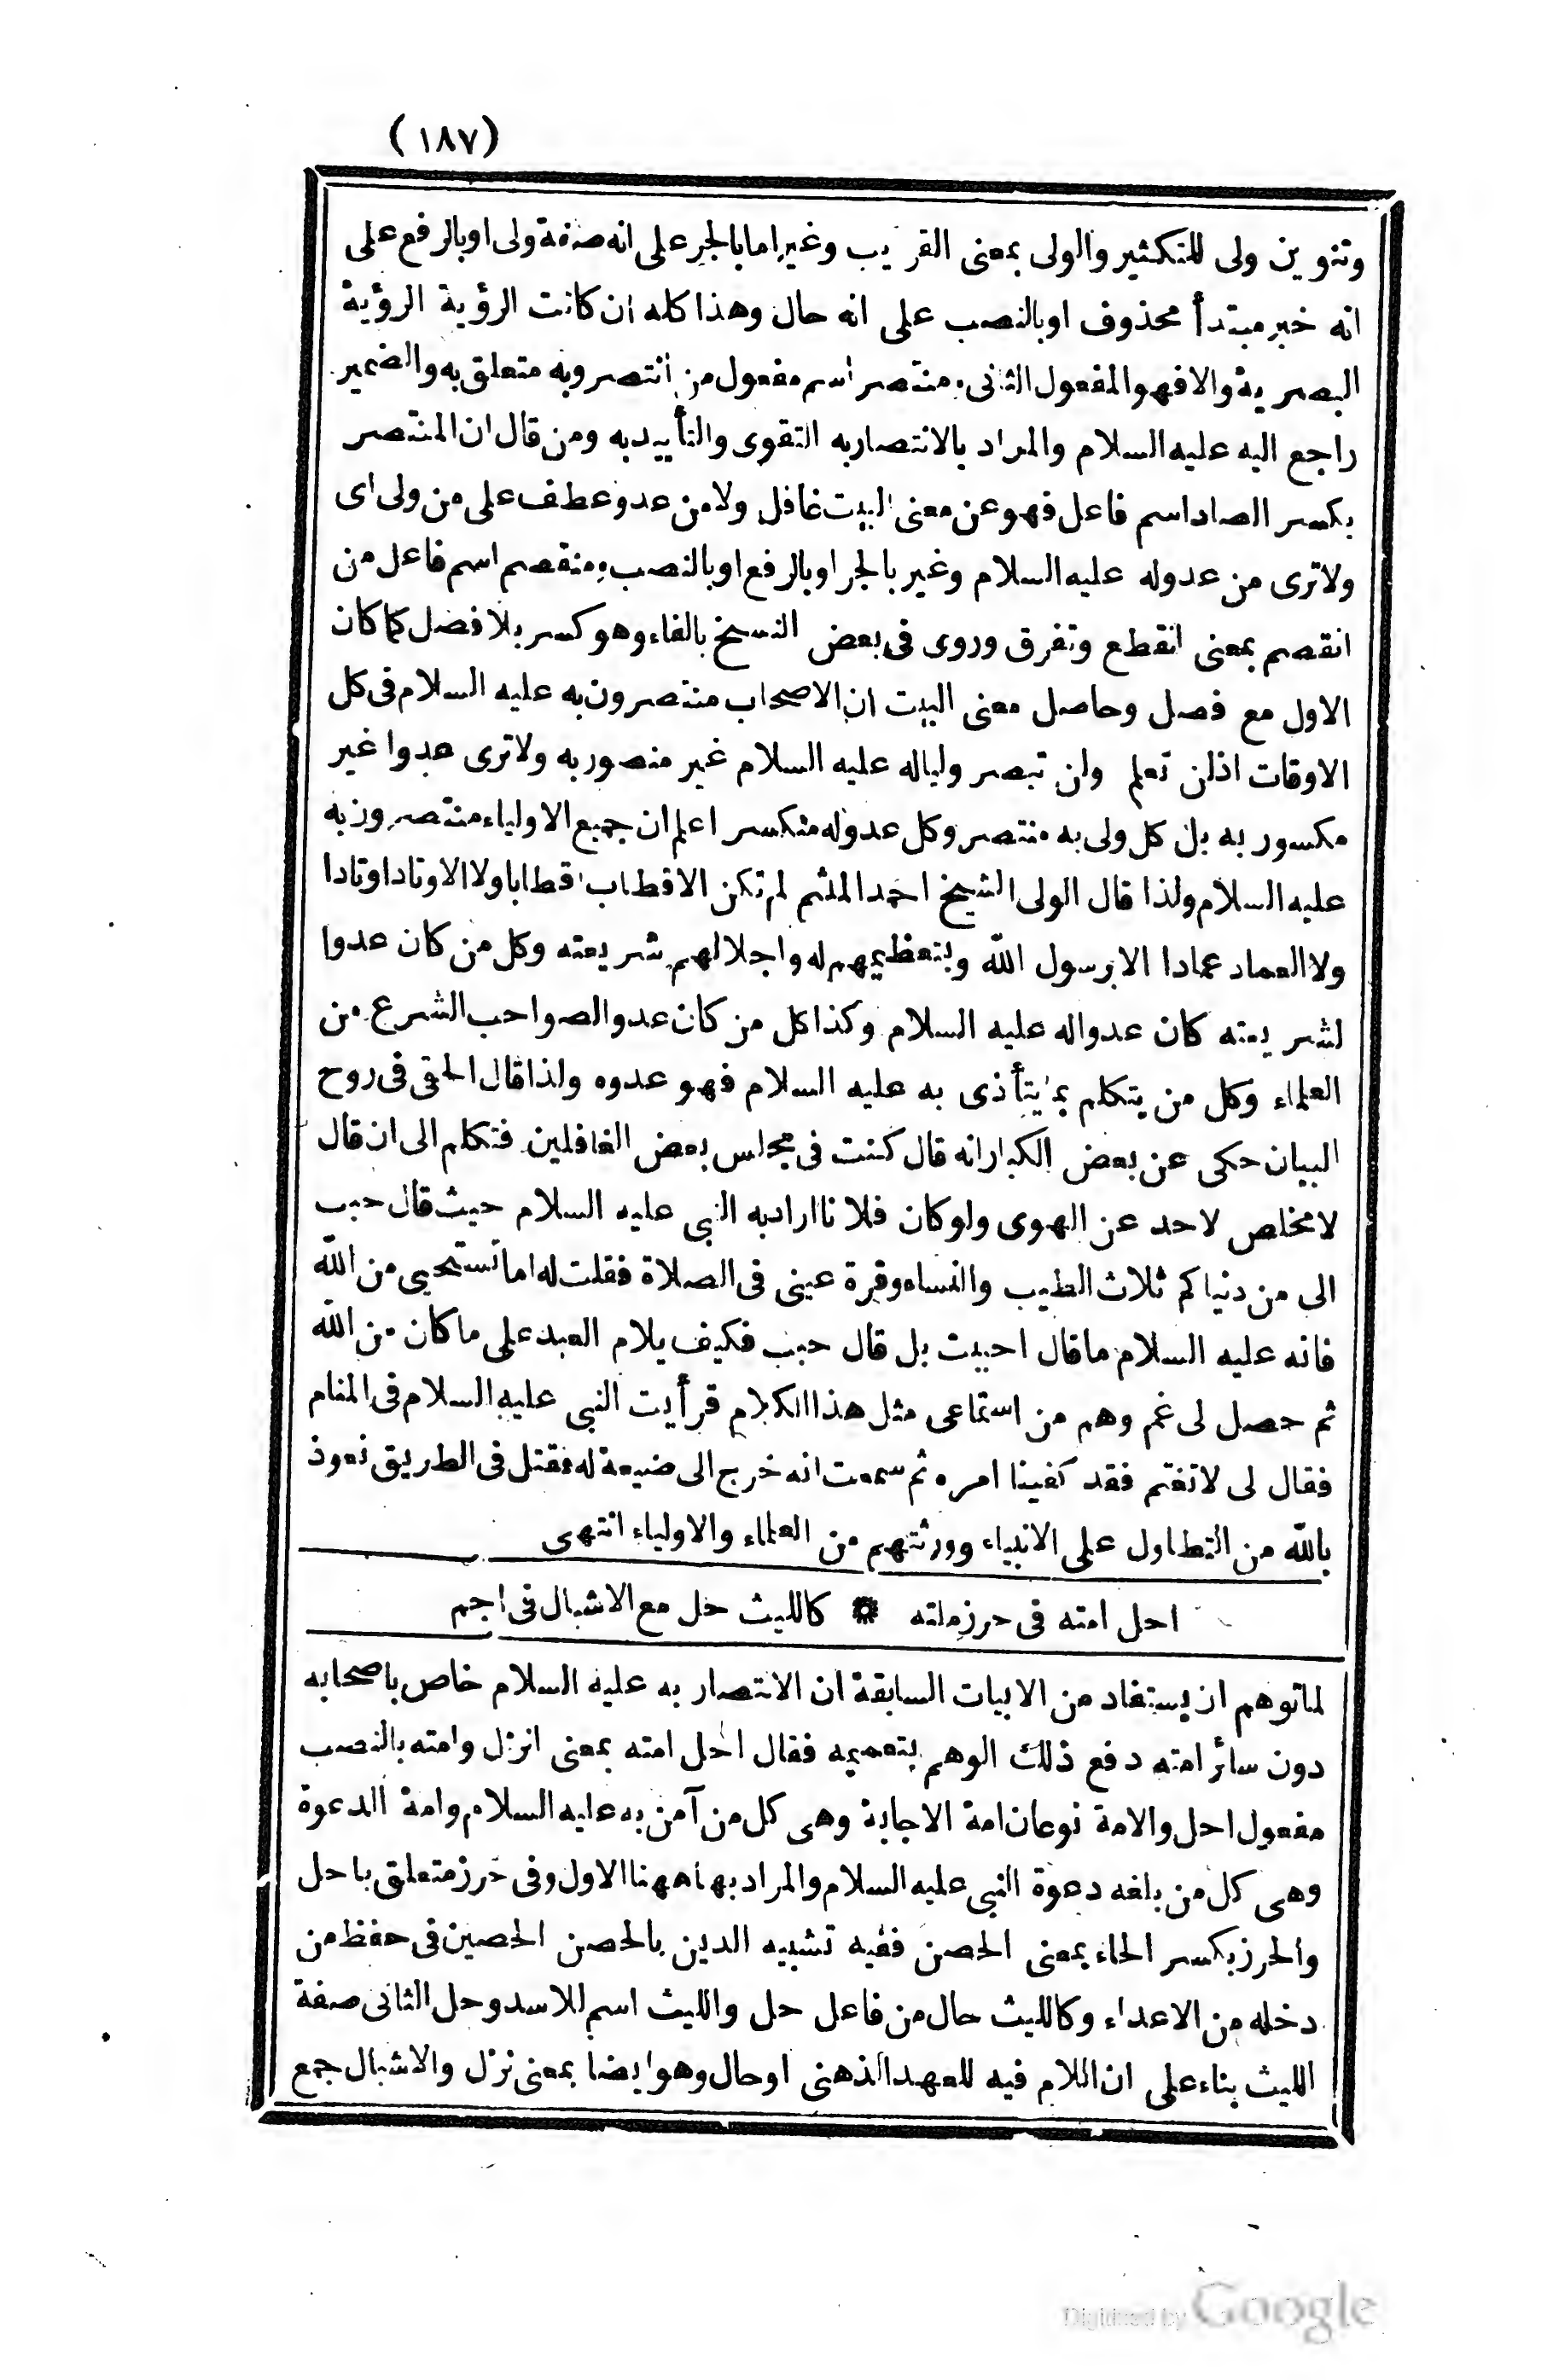 (١٨٧)
وتنوين ولى للتكثير والولى بمعنى القريب وغير اما بالجر على انه صفة ولى او بالرفع على
انه خبر مبتدأ محذوف او بالنصب على انه حال وهذا كله ان كانت الرؤية الرؤية
البصرية والا فهو المفعول الثانى ومنتصر اسم مفعول من انتصر وبه متعلق به والضمير
راجع اليه عليه السلام والمراد بالانتصار به التقوى والتأييد به ومن قال ان المنتصر
بكسر الصاد اسم فاعل فهو عن معنى البيت غافل ولا من عدو عطف على من ولى اى
ولا ترى من عدو له عليه السلام وغير بالجر او بالرفع او بالنصب ومنقصم اسم فاعل من
انقصم بمعنى انقطع وتفرق وروى فى بعض النسخ بالفاء وهو كسر بلا فصل كما كان
الاول مع فصل وحاصل معنى البيت ان الاصحاب منتصرون به عليه السلام فى كل
الاوقات اذ لن تعلم ولن تبصر وليا له عليه السلام غير منصور به ولا ترى عدوا غير
مكسور به بل كل ولى به منتصر وكل عدو له منكسر اعلم ان جميع الاولياء منتصرون به
عليه السلام ولذا قال الولى الشيخ احمد الملثم لم تكن الاقطاب اقطابا ولا الاوتاد اوتادا
ولا العماد عمادا الا برسول الله وبتعظيمهم له واجلالهم شريعته وكل من كان عدوا
لشريعته كان عدوا له عليه السلام وكذا كل من كان عدوا لصواحب الشرع من
العلماء وكل من يتكلم بما يتأذى به عليه السلام فهو عدوه ولذا قال الحقى فى روح
البيان حكى عن بعض الكبار انه قال كنت فى مجلس بعض الغافلين فتكلم الى ان قال
لا مخلص لاحد عن الهوى ولو كان فلانا اراد به النبى عليه السلام حيث قال حبب
الى من دنياكم ثلاث الطيب والنساء وقرة عينى فى الصلاة فقلت له اما تستحيى من الله
فانه عليه السلام ما قال احببت بل قال حبب فكيف يلام العبد على ما كان من الله
ثم حصل لى غم وهم من استماعى مثل هذا الكلام فرأيت النبى عليه السلام فى المنام
فقال لى لا تغتم فقد كفينا امره ثم سمعت انه خرج الى ضيعة له فقتل فى الطريق نعوذ
بالله من التطاول على الانبياء وورثتهم من العلماء والاولياء انتهى
احل امته فى حرز ملته ❁ كالليث حل مع الاشبال فى اجم
لما توهم ان يستفاد من الابيات السابقة ان الانتصار به عليه السلام خاص باصحابه
دون سائر امته دفع ذلك الوهم بتعميمه فقال احل امته بمعنى انزل وامته بالنصب
مفعول احل والامة نوعان امة الاجابة وهى كل من آمن به عليه السلام وامة الدعوة
وهى كل من بلغه دعوة النبى عليه السلام والمراد بها ههنا الاول وفى حرز متعلق باحل
والحرز بكسر الحاء بمعنى الحصن ففيه تشبيه الدين بالحصن الحصين فى حفظ من
دخله من الاعداء وكالليث حال من فاعل حل والليث اسم للاسد وحل الثانى صفة
الليث بناء على ان اللام فيه للعهد الذهنى او حال وهو ايضا بمعنى نزل والاشبال جمع
Digitized by Google